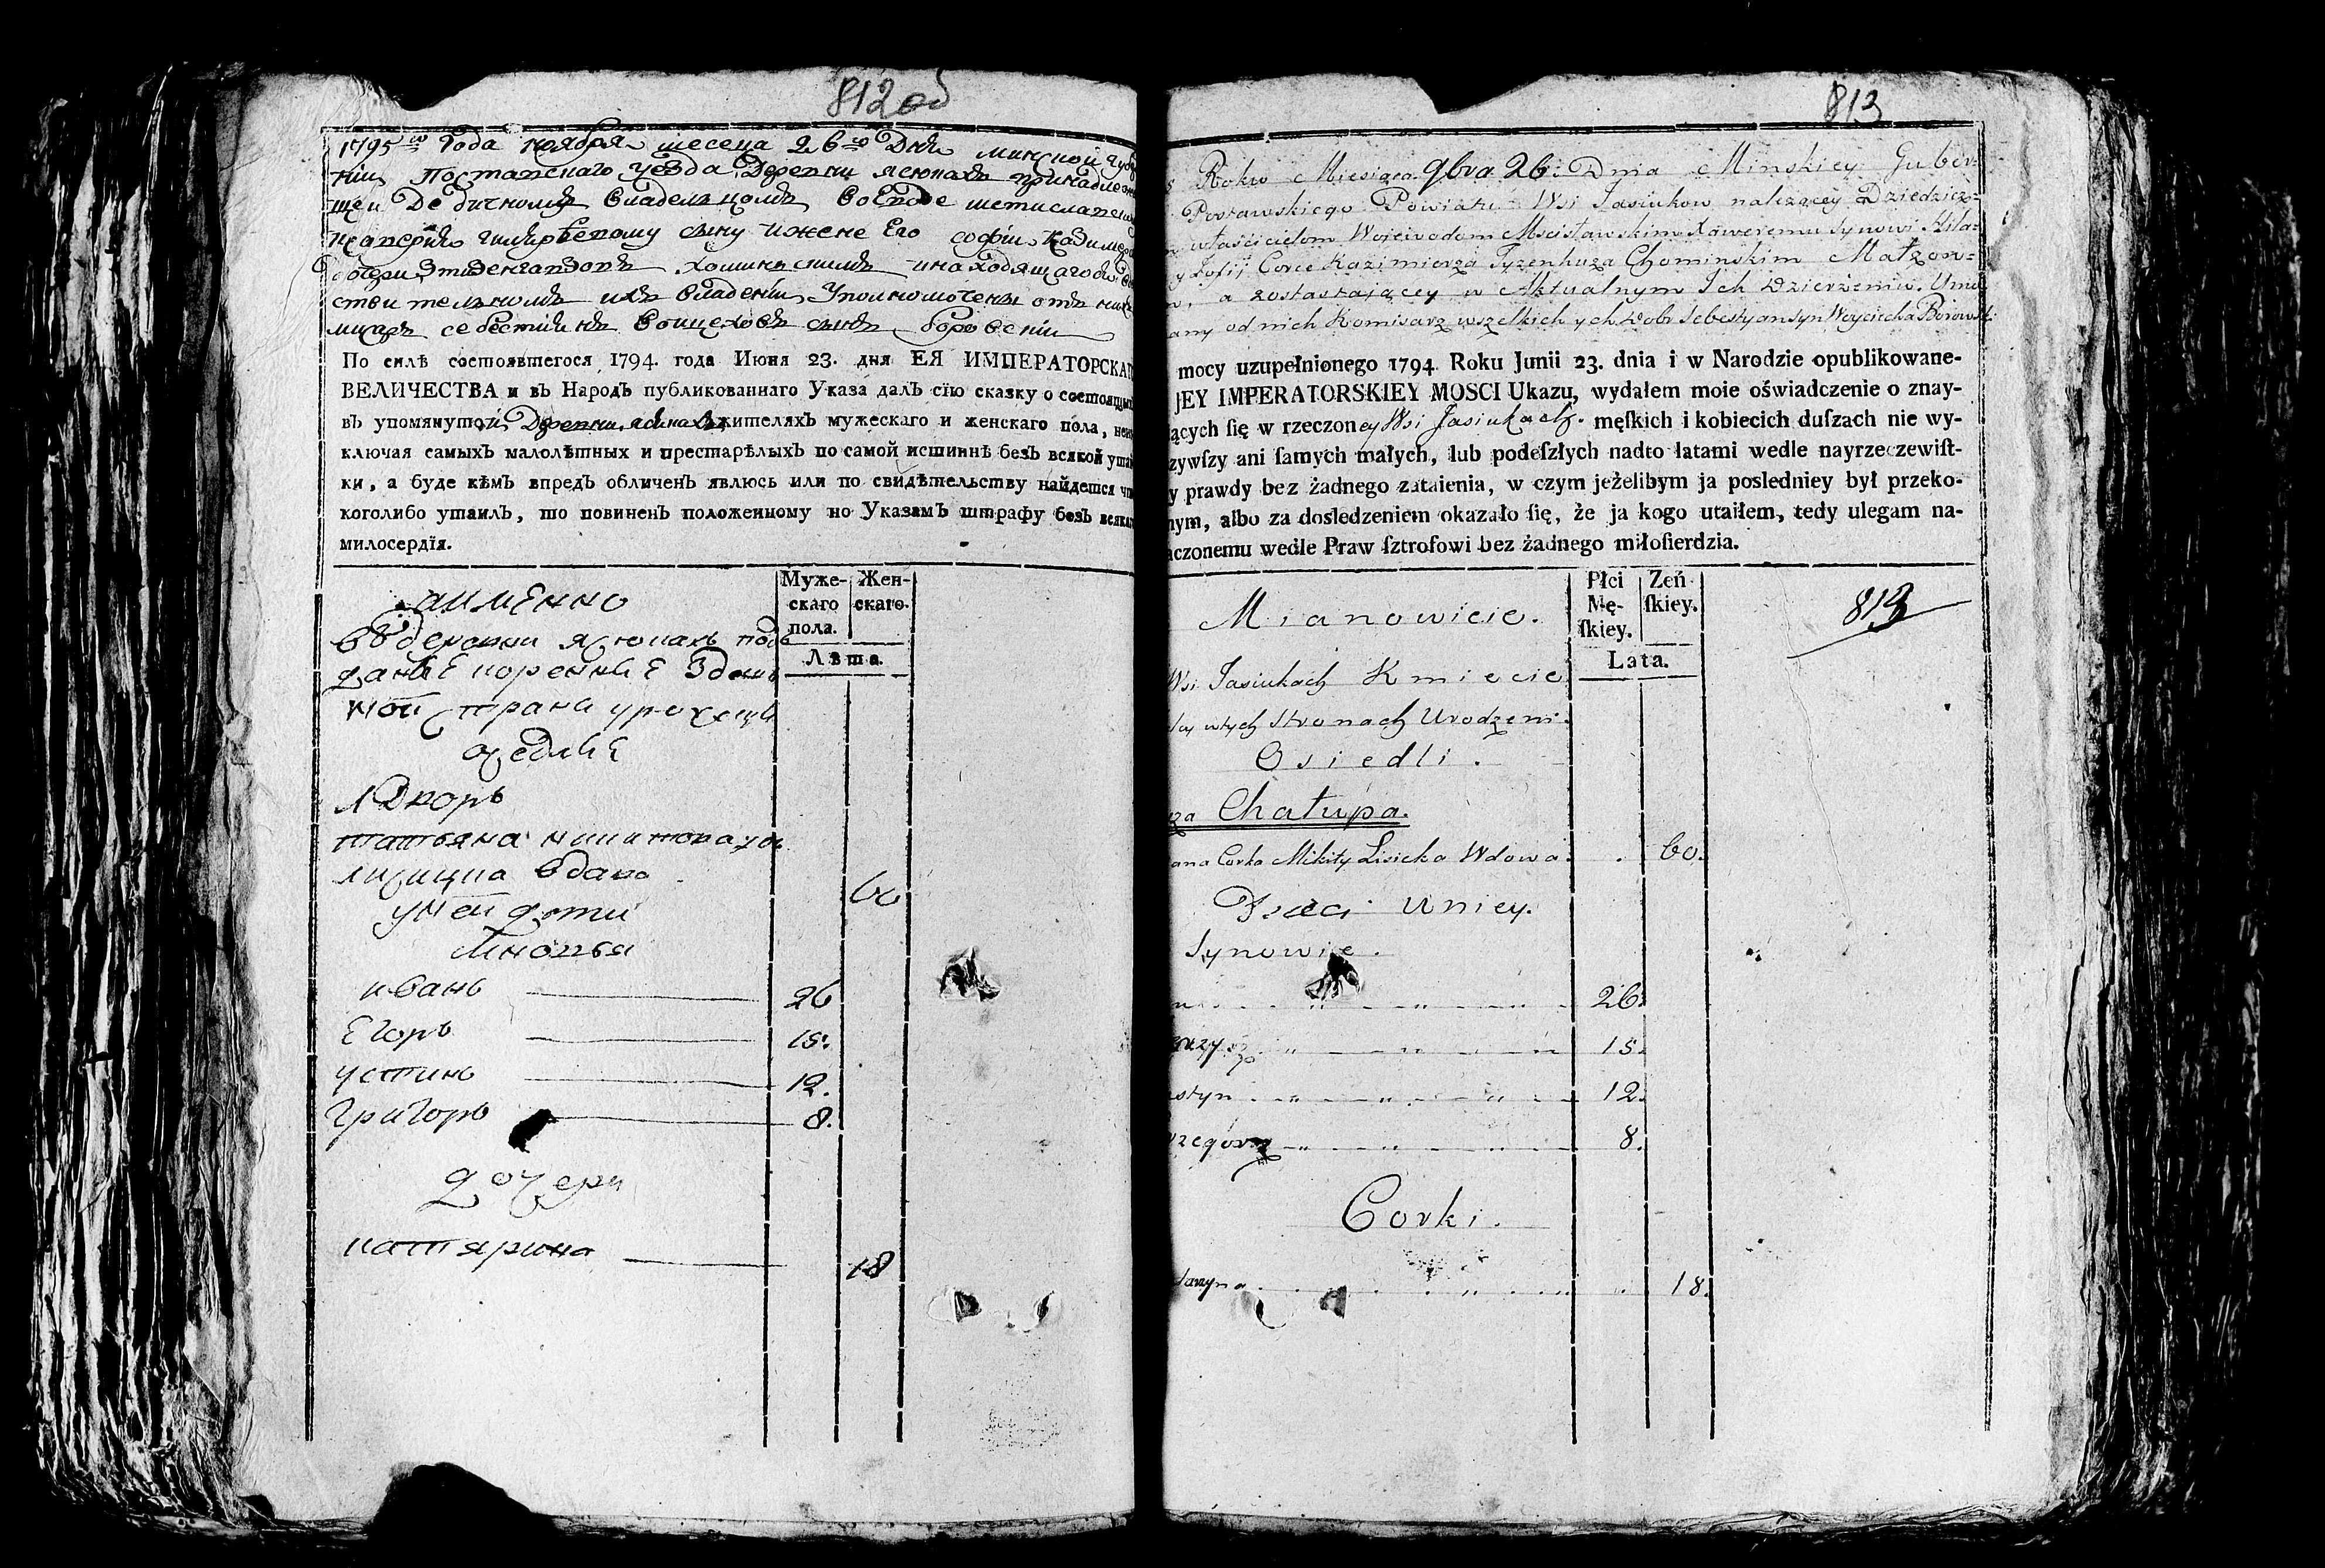 812 об
1795го Года ноября месеца 26го Дня минской губер
ніи Постапскаго уезда Деревни ясюкахъ принадлежа
щеи Дедичнымъ владельцомъ воеводе мстиславско
Ксаверію гилярьевому сыну ижене Его софіи Казимера
дочери хоминьскимъ инаходящагося въ
ствительномъ ихъ владеніи Уполномоченъ отъ нихъ
мисаръ себестиянъ воицеховъ сынъ боровскіи
По силѣ состоявшегося 1794. года Июня 23. дня ЕЯ ИМПЕРАТОРСКАГ
ВЕЛИЧЕСТВА и въ Народъ публикованнаго Указа далъ сїю сказку о состоящихъ
въ упомянутой Деревни ясюкахъ жителяхъ мужескаго и женскаго пола, неис
ключая самыхъ малолѣтныхъ и престарѣлыхъ по самой истиннѣ безъ всякой утай
ки, а буде кѣмъ впредъ обличенъ явлюсь или по свидѣтельству найдется что
коголибо утаилъ, то повиненъ положенному по Указамъ штрафу безъ всякаго
милосердїя.
аименно
Муже-скаго пола. Жен-скаго.
Лѣта.
вдеревни ясюкахъ под
даные коренные Здешъ
ной страны урожены
оседлые
1 Дворъ
татьяна микитова дочь
лисицка вдова 60
унеи дети
сыновья
иванъ 26
Егоръ 15.
устинъ 12.
Григоръ 8.
дочери
катярина 18
813
5 Roku Miesiąca 9bra 26: Dnia Minskiey Guber:
Postawskiego Powiatu Wsi Jasiukow nalezącey Dziedzicz=
właścicielom Woiewodom Mscisławskim Xaweremu Synowi Hila=
y Zofij Corce Kazimierza Tyzenhuza Chominskim Małzon=
, a zostaiącey w Aktualnym Ich Dzierzeniu. Umo
any od nich Komisarz wszelkich ych Dobr Sebestyan Syn Woyciecha Borowski
mocy uzupełnionego 1794 Roku Junii 23. dnia i w Narodzie opublikowane-
JEY IMPERATORSKIEY MOSCI Ukazu, wydałem moie oświadczenie o znay-
ących ſię w rzeczoney Wsi Jasiukach. męſkich i kobiecich duſzach nie wy-
zywſzy ani ſamych małych, lub podeſzłych nadto latami wedle nayrzeczewiſt-
y prawdy bez żadnego zataienia, w czym jeżelibym ja posledniey był przeko-
nym, albo za dosledzeniem okazało ſię, że ja kogo utaiłem, tedy ulegam na-
aczonemu wedle Praw ſztrofowi bez żadnego miłoſierdzia.
Mianowicie.
Płci Mę-ſkiey. Zeń ſkiey.
Lata.
813
Wsi Jasiukach Kmiecie
w tych Stronach Urodzeni
Osiedli.
za Chałupa.
ana Corka Mikity Lisicka Wdowa. 60.
Dzieci Uniey.
Synowie.
n 26.
rzy 15.
styn 12.
rzegorz 8.
Corki.
tarzyna 18.